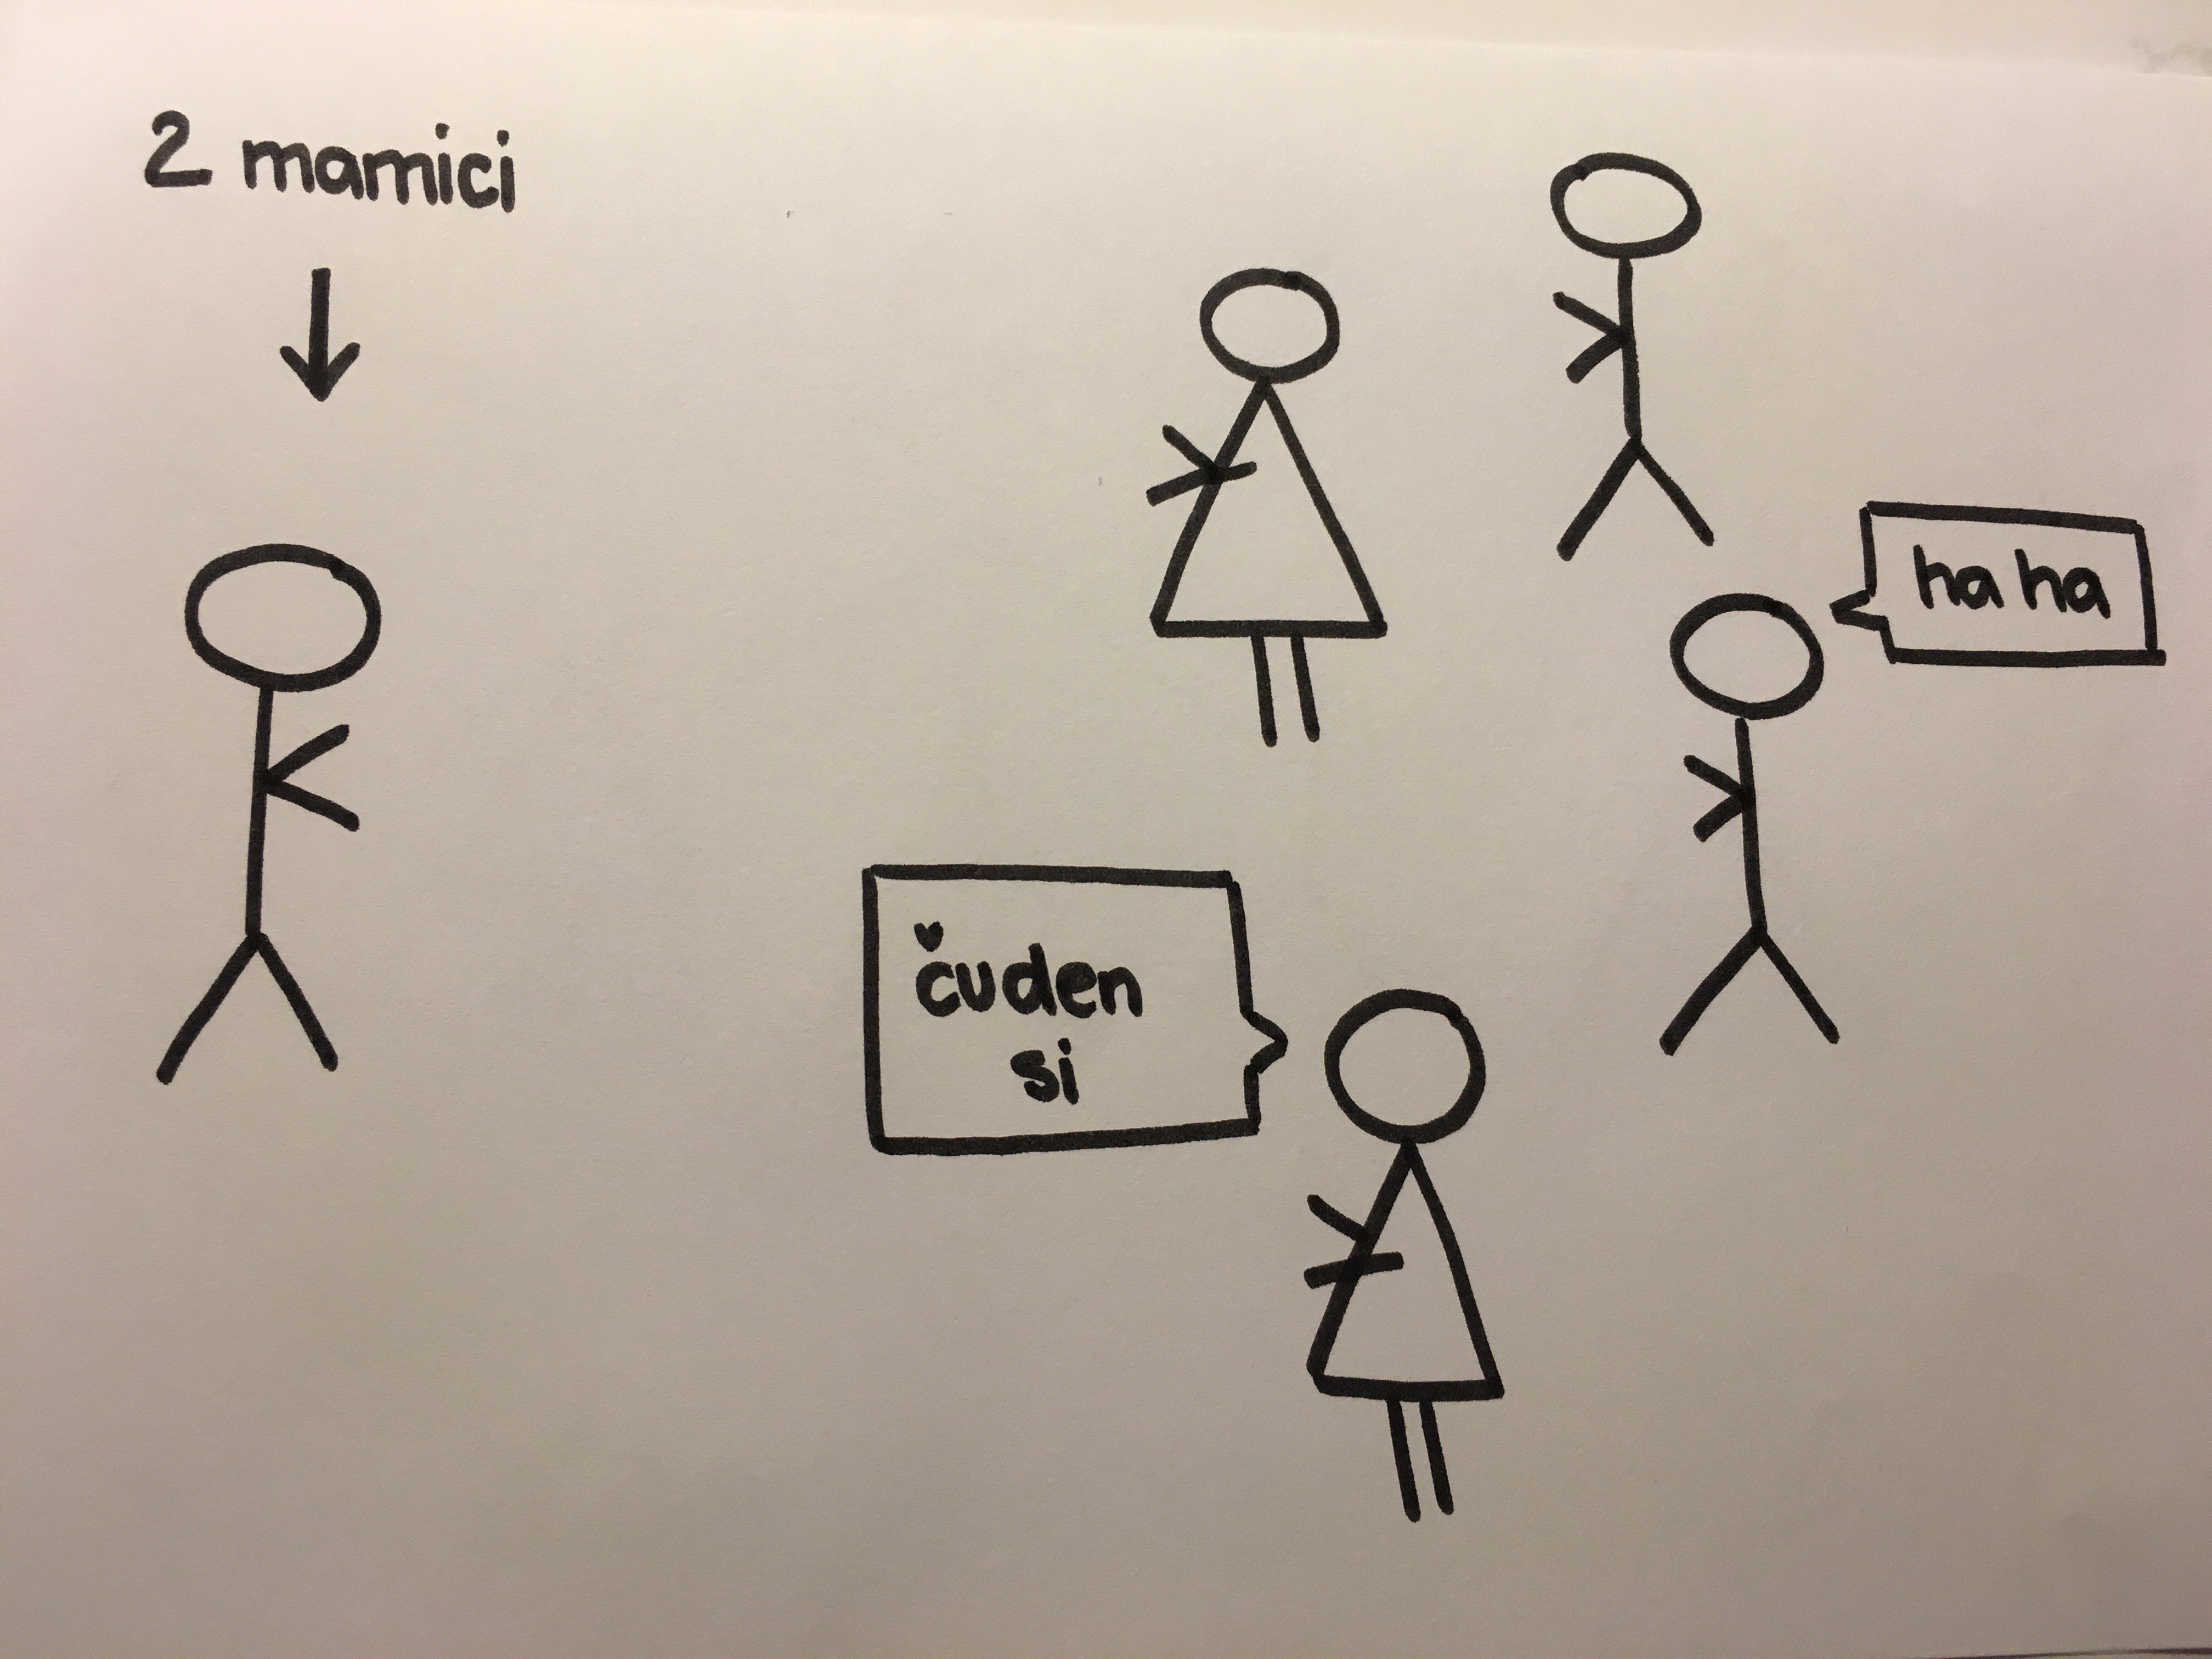 2 mamici
ha ha
čuden
si